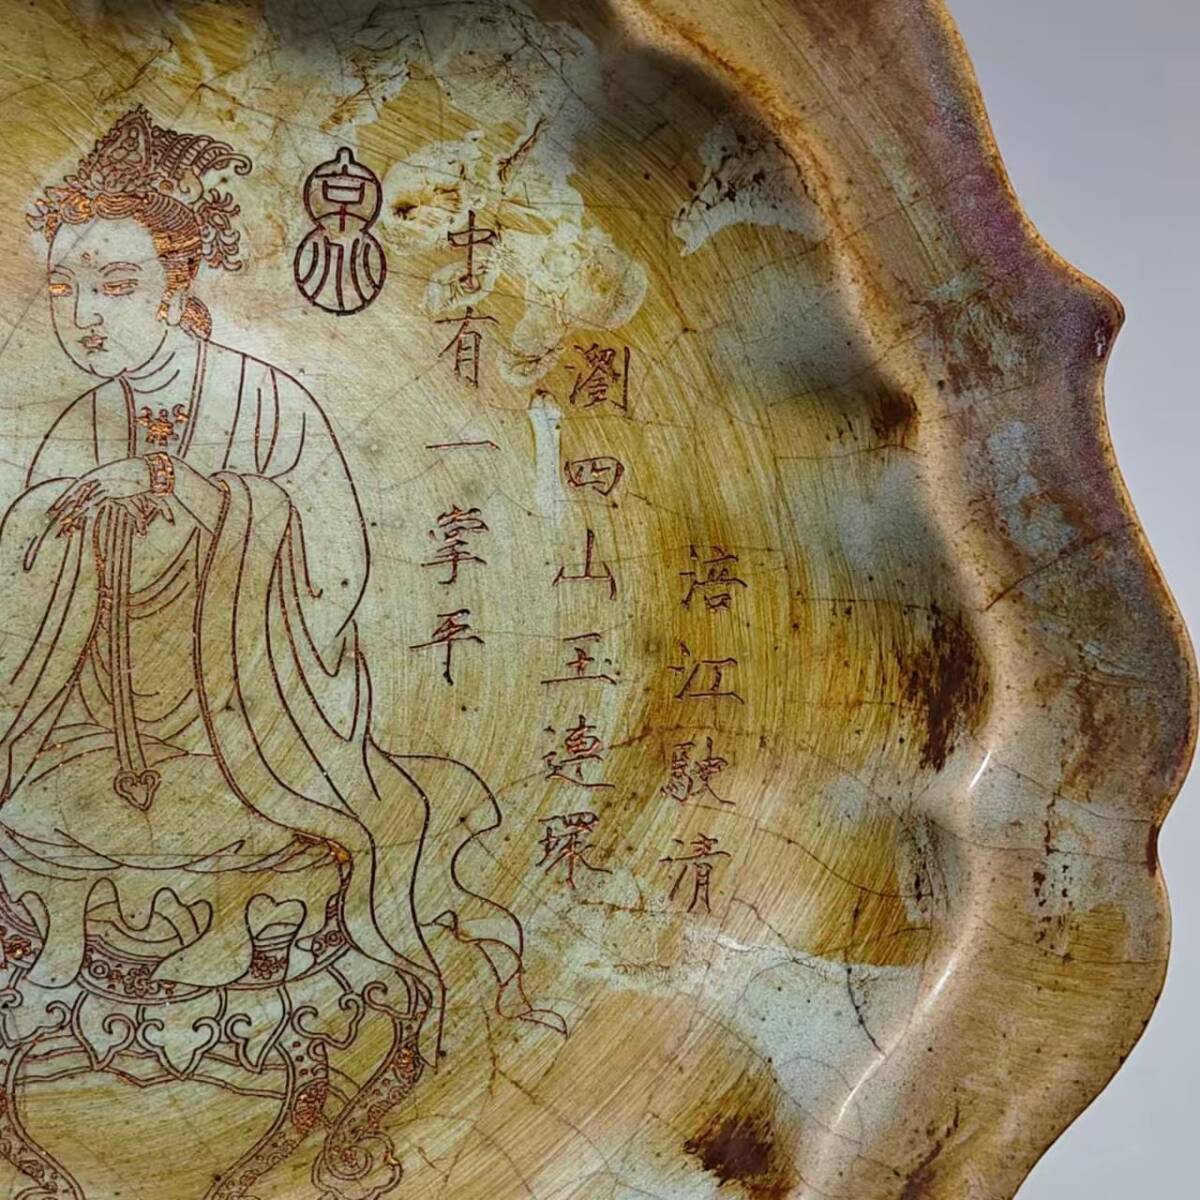 涪江駛清
瀏四山玉連環
中有一掌平